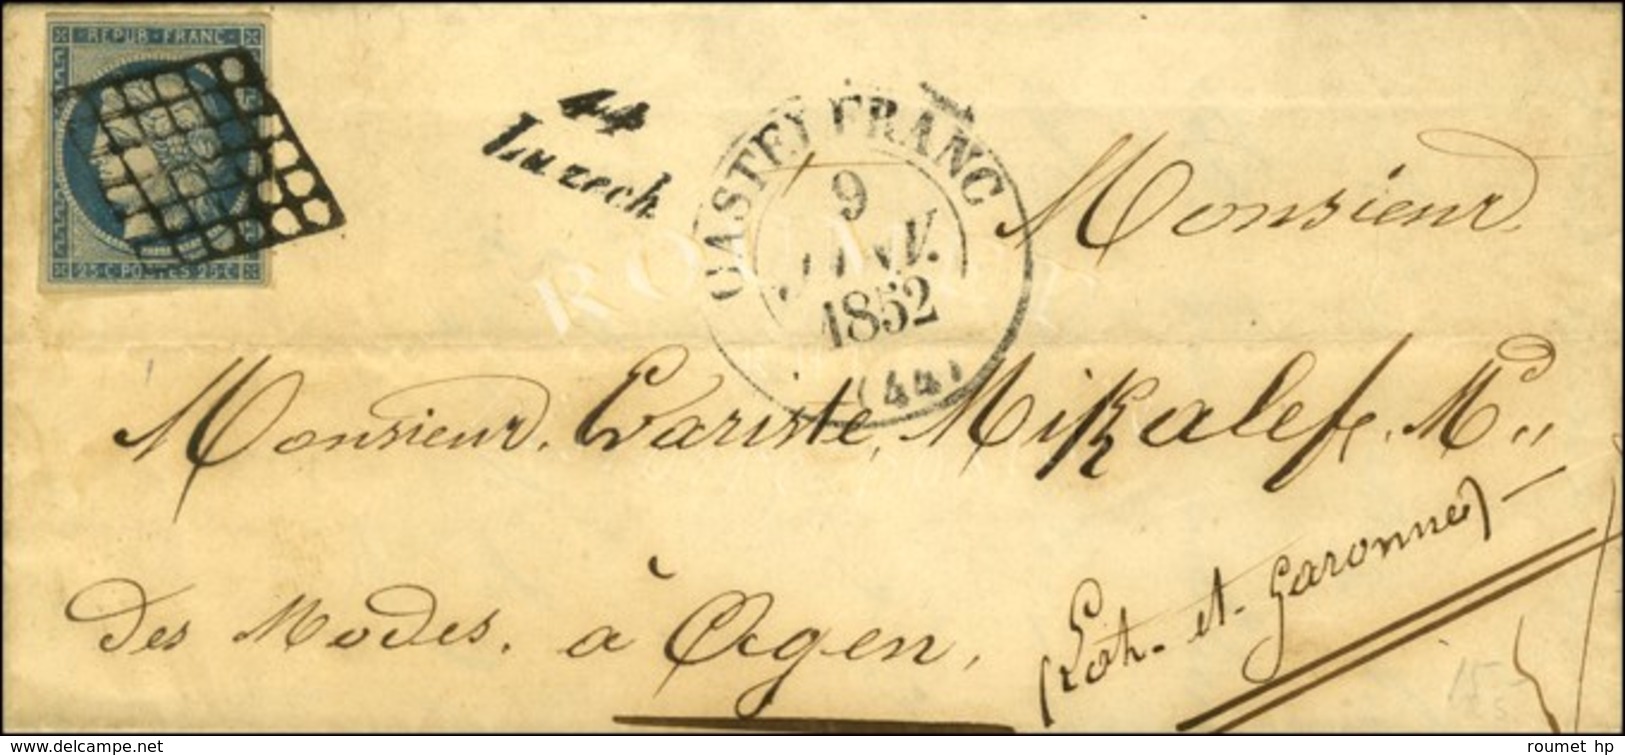 REPUB FRANC
25 C POSTES 25 C
44
Luzech
CASTELFRANC
9
JANV.
1852
(44)
Monsieur
Monsieur, Evariste, Mikalef, Md,,
des Modes, à Agen,
(Lot-et-Garonne)
15
www.delcampe.net
roumet hp